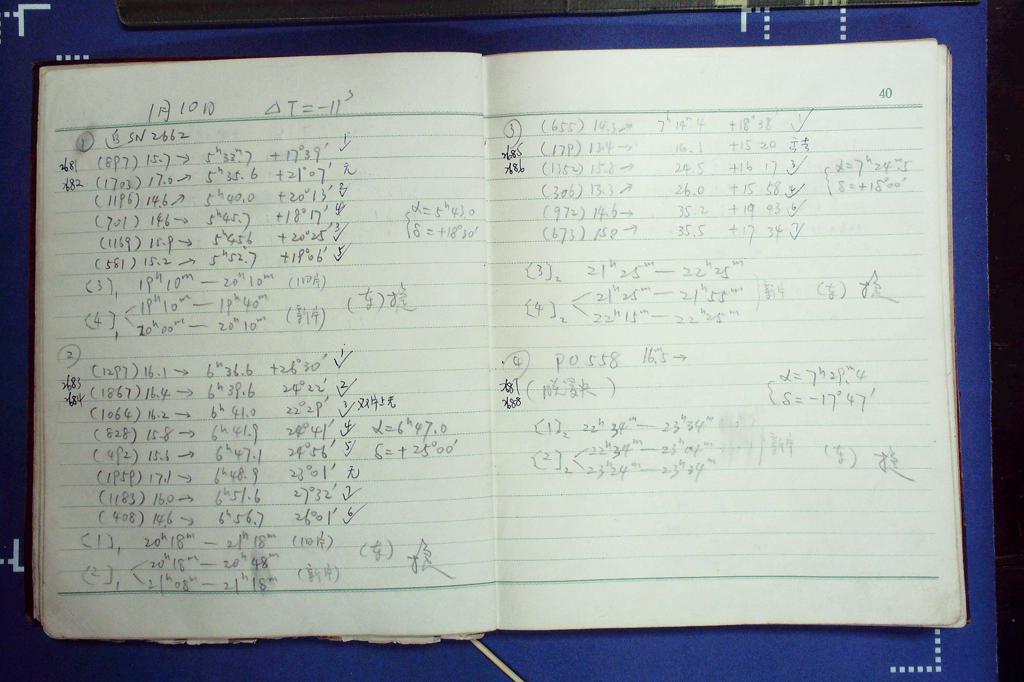 1月10日 ΔT=-11ˢ
① 追 SN 2662
2681 (897) 15.7 → 5ʰ33ᵐ.7 +17°39′ ✓1
2682 (1703) 17.0 → 5ʰ35.6 +21°07′ 无
(1196) 14.6 → 5ʰ40.0 +20°13′ ✓2
(701) 14.6 → 5ʰ45.7 +18°17′ ✓4
(1169) 15.9 → 5ʰ45.6 +20°25′ ✓3
(581) 15.2 → 5ʰ52.7 +19°06′ ✓5
{α=5ʰ43.0
δ=+18°30′
{3}₁ 19ʰ10ᵐ — 20ʰ10ᵐ (旧片)
{4}₁ 19ʰ10ᵐ — 19ʰ40ᵐ
20ʰ00ᵐ — 20ʰ10ᵐ (新片) (东)
②
(1297) 16.1 → 6ʰ36.6 +26°30′ ✓1
2683 (1867) 16.4 → 6ʰ39.6 24°22′ ✓2
2684 (1064) 16.2 → 6ʰ41.0 22°29′ ✓3 双片5无
(828) 15.8 → 6ʰ41.9 24°41′ ✓4
(492) 15.6 → 6ʰ47.1 24°56′ ✓5
(1959) 17.1 → 6ʰ48.9 23°01′ 无
(1183) 16.0 → 6ʰ51.6 27°32′ ✓7
(408) 14.6 → 6ʰ56.7 26°01′ ✓6
α=6ʰ47.0
δ=+25°00′
{1}₁ 20ʰ18ᵐ — 21ʰ18ᵐ (旧片)
{2}₁ 20ʰ18ᵐ — 20ʰ48ᵐ
21ʰ08ᵐ — 21ʰ18ᵐ (新片) (东)
40
③ (655) 14.3 → 7ʰ14ᵐ.4 +18°38′ ✓1
2685 (179) 13.4 → 16.1 +15 20
2686 (1352) 15.8 → 24.5 +16 17 ✓3
(306) 13.3 ↗ 26.0 +15 58 ✓4
(972) 14.6 → 35.2 +19 03 ✓6
(673) 15.0 → 35.5 +17 34 ✓7
{α=7ʰ24ᵐ.5
δ=+18°00′
{3}₂ 21ʰ25ᵐ — 22ʰ25ᵐ
{4}₂ 21ʰ25ᵐ — 21ʰ55ᵐ
22ʰ15ᵐ — 22ʰ25ᵐ 新片 (东)
④ PO.558 16ᵐ.5 →
2687
2688
{α=7ʰ29ᵐ.4
δ=-17°47′
{1}₂ 22ʰ34ᵐ — 23ʰ34ᵐ
{2}₂ 22ʰ34ᵐ — 23ʰ04ᵐ
23ʰ24ᵐ — 23ʰ34ᵐ 新片 (东)